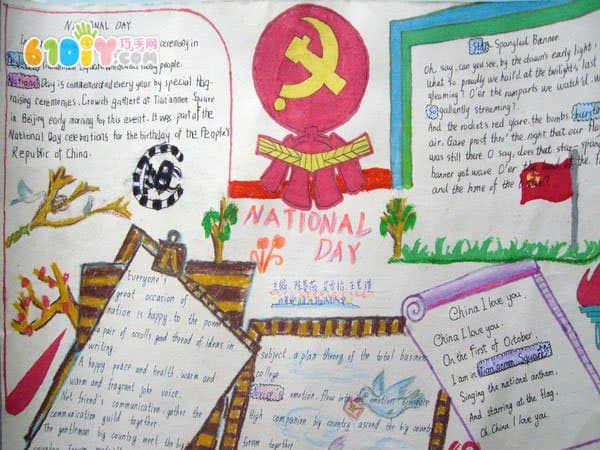 NATIONAL DAY
61DIY.com
巧手网
ceremony in
people.
National Day is commemorated every year by special flag-
raising ceremonies. Crowds gather at Tian'anmen Square
in Beijing early morning for this event. It was part of the
National Day celebrations for the birthday of the People's
Republic of China.
Star-Spangled Banner
Oh, say, can you see, by the dawn's early light,
what so proudly we hail'd at the twilight's last
gleaming? O'er the ramparts we watch'd, w
So gallantly streaming?
And the rocket's red glare, the bombs
air. Gave proof thro' the night that our fla
was still there. O say, does that star-spang
banner yet wave O'er the
and the home of the
NATIONAL
DAY
主编:
Everyone's
great occasion of
nation is happy to the poem
a pair of scrolls good thread of ideas in
writing
A happy peace and health, warm and
warm and fragrant joke voice.
Net friend's communication, gather the
communication guild together
The gentleman big country meet the big
subject, a plan theory of the total business
college.
emotion flow into emotion
High companion by country ascend the big country
forum together
China I love you.
China I love you.
On the first of October.
I am in Tian'anmen Square
Singing the national anthem.
And starring at the flag.
Oh, China I love you.